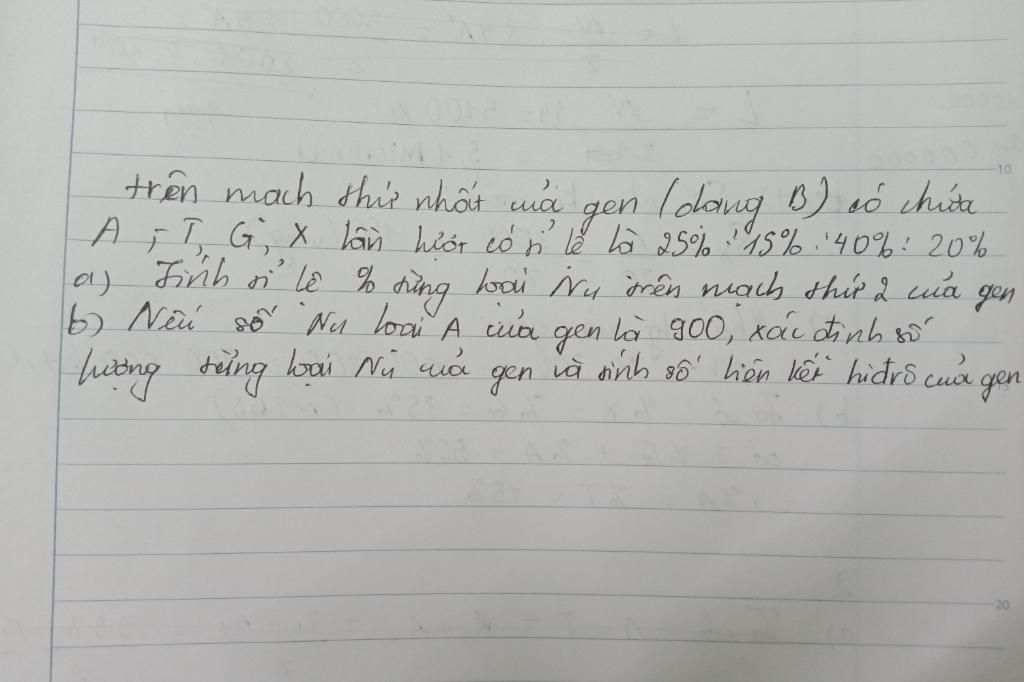 trên mạch thứ nhất của gen (dạng B) có chứa
A, T, G, X lần lượt có tỉ lệ là 25% : 15% : 40% : 20%
a) Tính tỉ lệ % từng loại Nu trên mạch thứ 2 của gen
b) Nếu số Nu loại A của gen là 900, xác định số
lượng từng loại Nu của gen và tính số liên kết hiđrô của gen
10
20